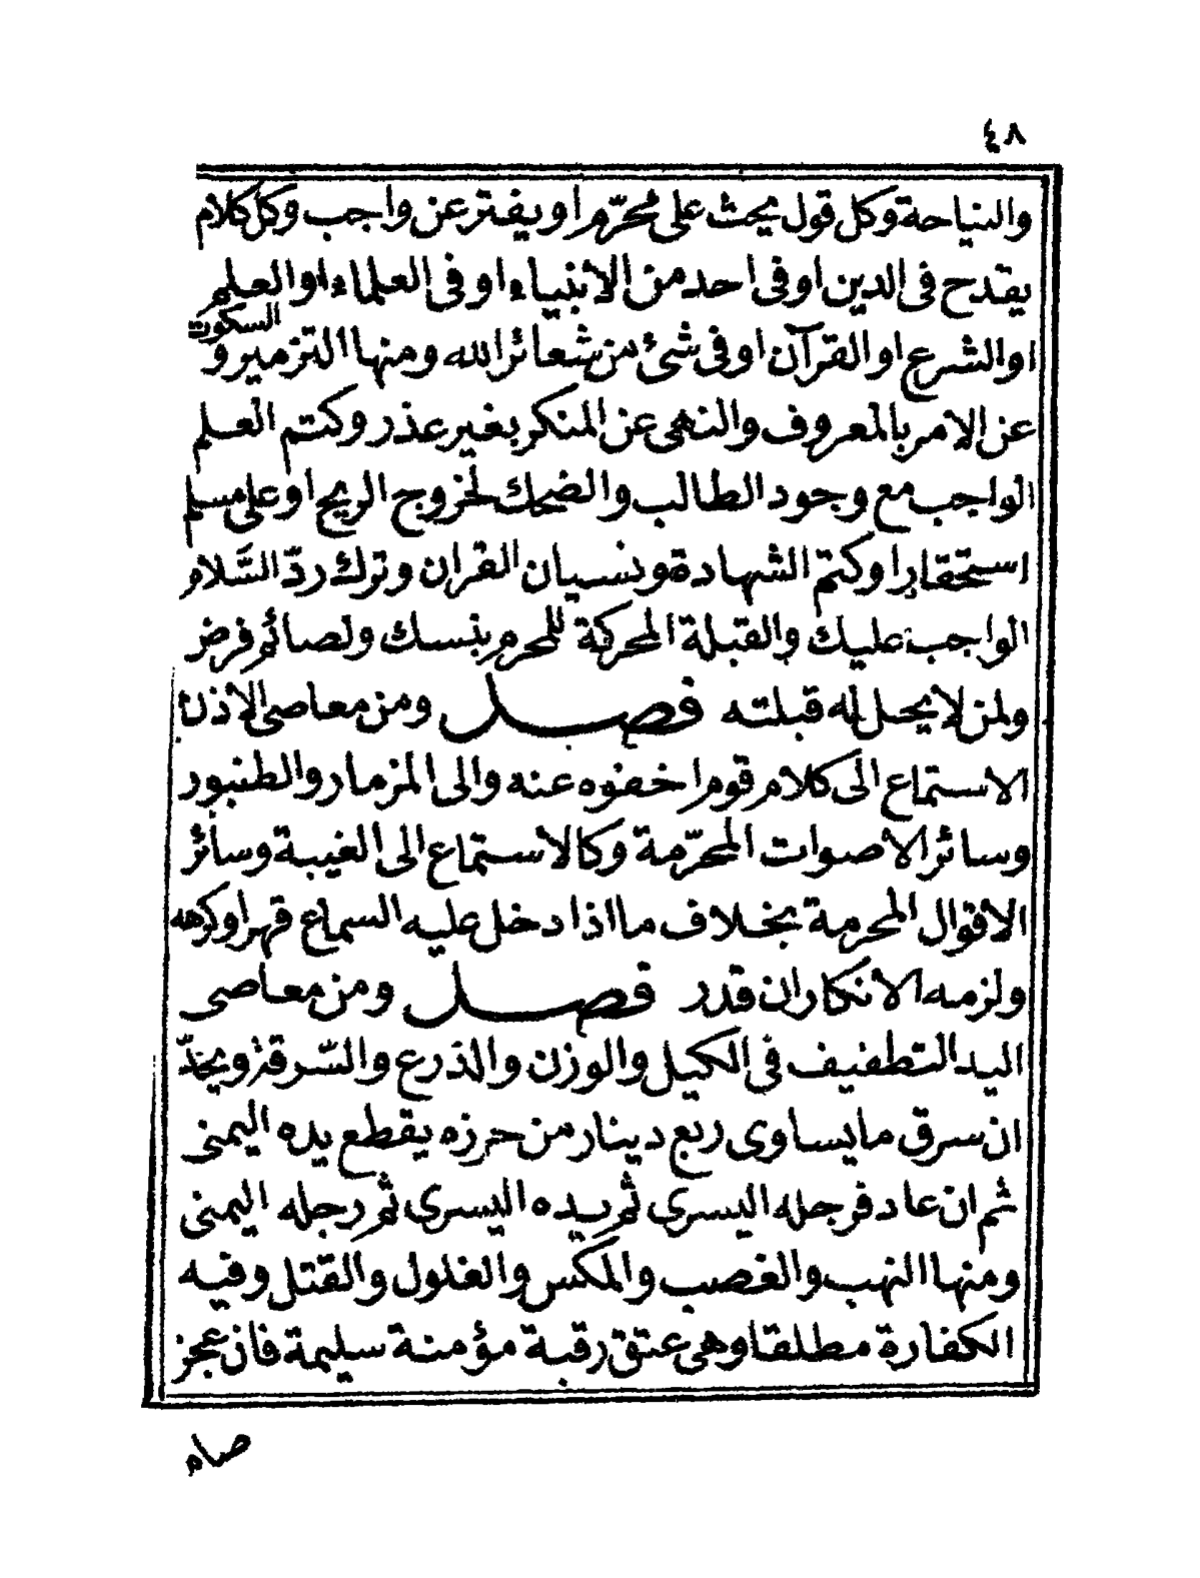 ٤٨
والنياحة وكل قول يحث على محرّم او يفتر عن واجب وكل كلام
يقدح فى الدين او فى احد من الانبياء او فى العلماء او العلم
او الشرع او القرآن او فى شئ من شعائر الله ومنها التزمير و السكوت
عن الامر بالمعروف والنهى عن المنكر بغير عذر وكتم العلم
الواجب مع وجود الطالب والضحك لخروج الريح او على مسلم
استحقارا وكتم الشهادة ونسيان القران وترك ردّ السَّلام
الواجب عليك والقبلة المحركة للمحرم بنسك ولصائم فرض
ولمن لا يحل له قبلته فصل ومن معاصى الاذن
الاستماع الى كلام قوم اخفوه عنه والى المزمار والطنبور
وسائر الاصوات المحرّمة وكالاستماع الى الغيبة وسائر
الاقوال المحرمة بخلاف ما اذا دخل عليه السماع قهرا وكرهه
ولزمه الانكار ان قدر فصل ومن معاصى
اليد التطفيف فى الكيل والوزن والذرع والسّرقة ويحدّ
ان سرق ما يساوى ربع دينار من حرزه يقطع يده اليمنى
ثم ان عاد فرجله اليسرى ثم يده اليسرى ثم رجله اليمنى
ومنها النهب والغصب والمكس والغلول والقتل وفيه
الكفارة مطلقا وهى عتق رقبة مؤمنة سليمة فان عجز
صام